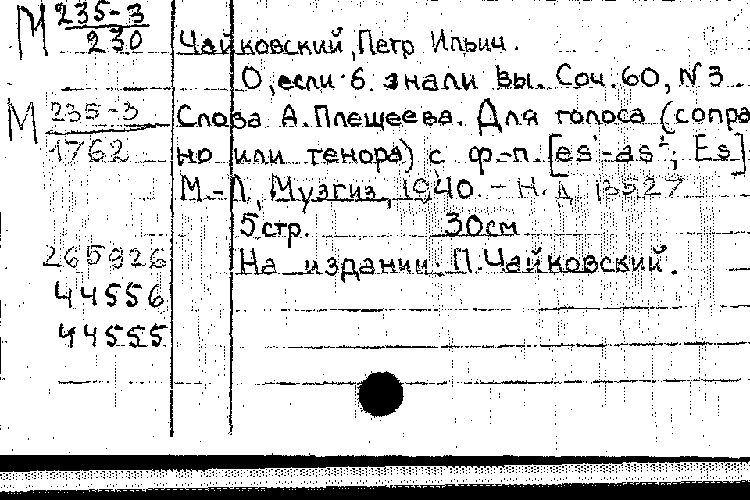 М 235-3
230
Чайковский, Петр Ильич.
О, если б знали вы. Соч. 60, N 3.
М 235-3
1762
Слова А. Плещеева. Для голоса (сопра
но или тенора) с ф-п. [es¹-as²; Es]
М.-Л, Музгиз, 1940. - Н.Д 13527
5 стр. 30см
265926
На издании: П. Чайковский.
44556
44555